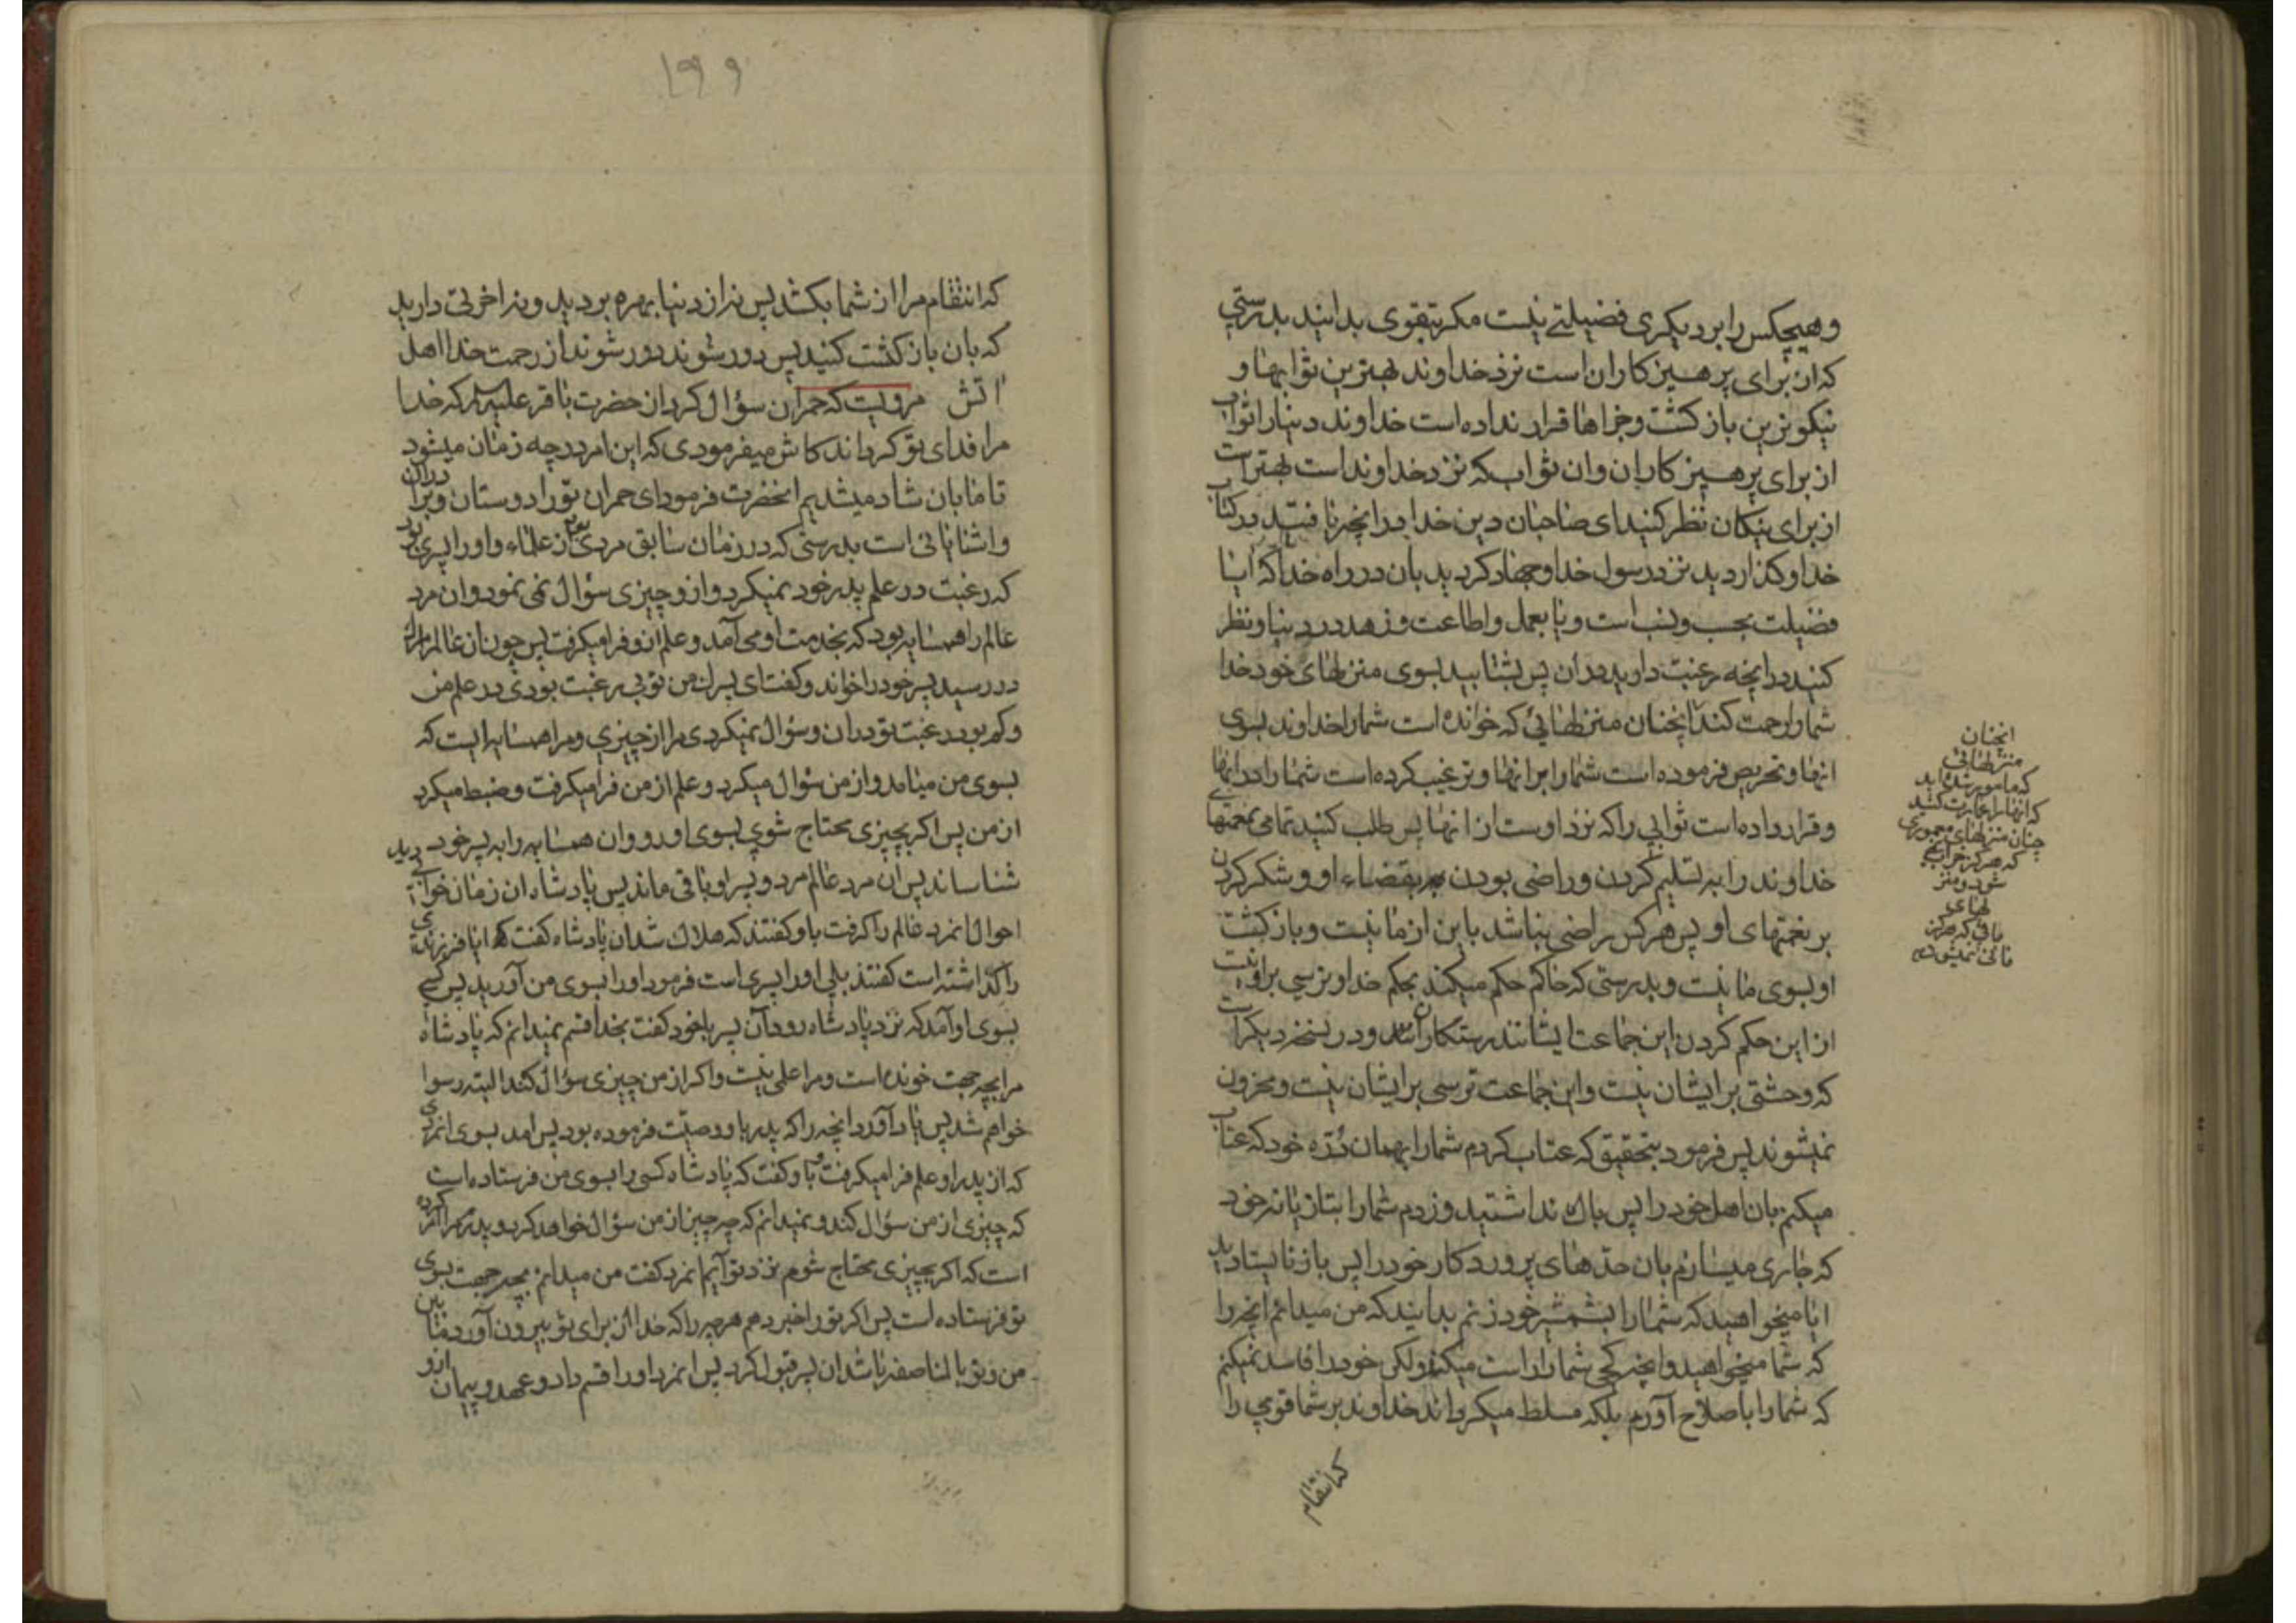 وهیچکس را بر دیکری فضیلتی نیست مکر بتقوی بدانید بدرستی
که ان برای پرهیزکاران است نزد خداوند بهترین ثوابها و
نیکوترین بازکشت وجزاها قرار نداده است خداوند دنیا را ثواب
از برای پرهیزکاران وان ثواب که نزد خداوند است بهتر است
از برای نیکان نظر کنید ای صاحبان دین خدا در انچه یافتید در کتاب
خدا وکذاردید نزد رسول خدا وجهاد کردید بان در راه خدا که ایا
فضیلت بحسب ونسب است ویا بعمل واطاعت وزهد در دنیا ونظر
کنید در انچه رغبت دارید در ان پس بشتابید بسوی منزلهای خود خدا
شما را رحمت کند انچنان منزلهائی که خوانده است شما را خداوند بسوی
انها وتحریص فرموده است شما را بر انها وترغیب کرده است شما را در انها
وقرار داده است ثوابی را که نزد اوست از انها پس طلب کنید تمامی نعمتهای
خداوند را به تسلیم کردن وراضی بودن بقضاء او وشکر کردن
بر نعمتهای او پس هرکس راضی نباشد باین از ما نیست وبازکشت
او بسوی ما نیست وبدرستی که حاکم حکم میکند بحکم خدا وترسی بر او نیست
از این حکم کردن این جماعت ایشانند رستکاران ودر نسخه دیکر است
که وحشتی بر ایشان نیست واین جماعت ترسی بر ایشان نیست ومحزون
نمیشوند پس فرمود بتحقیق که عتاب کردم شما را بهمان دُرّه خود که عتاب
میکنم بان اهل خود را پس باک نداشتید وزدم شما را بتازیانه خود
که جاری میسازم بان حدهای پروردکار خود را پس باز نایستادید
ایا میخواهید که شما را بشمشیر خود زنم بدانید که من میدانم انچه را
که شما میخواهید وانچه کجی شما را راست میکند ولکن خود را فاسد نمیکنم
که شما را باصلاح آورم بلکه مسلط میکرداند خداوند بر شما قومی را
که انتقام
انچنان
منزلهائی
که مامور شده اید
که انها را عمارت کنید
چنان منزلهای معموری
که هرکز خراب
شود ومنز
لهای
باقی که هرکز
فانی نمیشود
۱۹۹
که انتقام مرا از شما بکشد پس نه از دنیا بهره بردید ونه اخرتی دارید
که بان بازکشت کنید پس دور شوند دور شوند از رحمت خدا اهل
اتش مرویست که حمران سؤال کرد از حضرت باقر علیه السلام که خدا
مرا فدای تو کرداند کاش میفرمودی که این امر در چه زمان میشود
تا ما بان شاد میشدیم انحضرت فرمود ای حمران تو را دوستان وبرادران
واشنایانی است بدرستی که در زمان سابق مردی بود از علماء واو را پسری بود
که رغبت در علم پدر خود نمیکرد واز و چیزی سؤال نمی نمود وان مرد
عالم را همسایه بود که بخدمت او می آمد وعلم از و فرا میکرفت پس چون ان عالم را مرک
در رسید پسر خود را خواند وکفت ای پسرک من تو بی رغبت بودی در علم من
وکم بود رغبت تو در ان وسؤال نمیکردی مرا از چیزی ومرا همسایه ایست که
بسوی من میامد واز من سؤال میکرد وعلم از من فرا میکرفت وضبط میکرد
از من پس اکر بچیزی محتاج شوی بسوی او رو وان همسایه را به پسر خود
شناساند پس ان مرد عالم مرد وپسر او باقی ماند پس پادشاه ان زمان خوابی دید
احوال انمرد عالم را کرفت باو کفتند که هلاک شد ان پادشاه کفت ایا فرزندی
را کذاشته است کفتند بلی او را پسری است فرمود او را بسوی من آورید پس کسی
بسوی او آمد که نزد پادشاه رود آن پسر با خود کفت بخدا قسم نمیدانم که پادشاه
مرا بچه جهت خوانده است ومرا علمی نیست واکر از من چیزی سؤال کند البته رسوا
خواهم شد پس یاد آورد انچه را که پدر باو وصیّت فرموده بود پس امد بسوی انمردی
که از پدر او علم فرا میکرفت وباو کفت که پادشاه کسی را بسوی من فرستاده است
که چیزی از من سؤال کند ونمیدانم که چه چیز از من سؤال خواهد کرد وپدرم مرا امر کرده
است که اکر بچیزی محتاج شوم نزد تو آیم انمرد کفت من میدانم بچه جهت بسوی
تو فرستاده است پس اکر تو را خبر دهم هر چه را که خدا از برای تو بیرون آورد مابین
من وتو بالمناصفه باشد ان پسر قبول کرد پس انمرد او را قسم داد وعهد وپیمان ازو